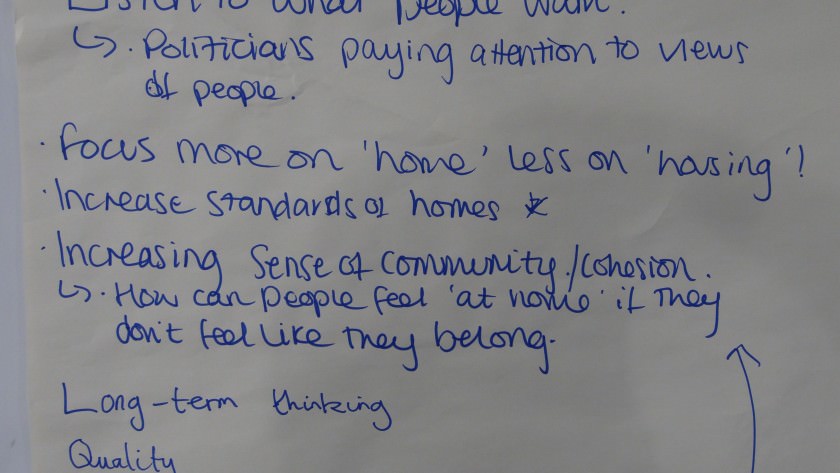 Listen to what people want.
↳ · Politicians paying attention to views
of people.
· Focus more on 'home' less on 'housing'!
· Increase standards of homes *
· Increasing sense of community/cohesion.
↳ · How can people feel 'at home' if they
don't feel like they belong.
Long-term thinking
Quality